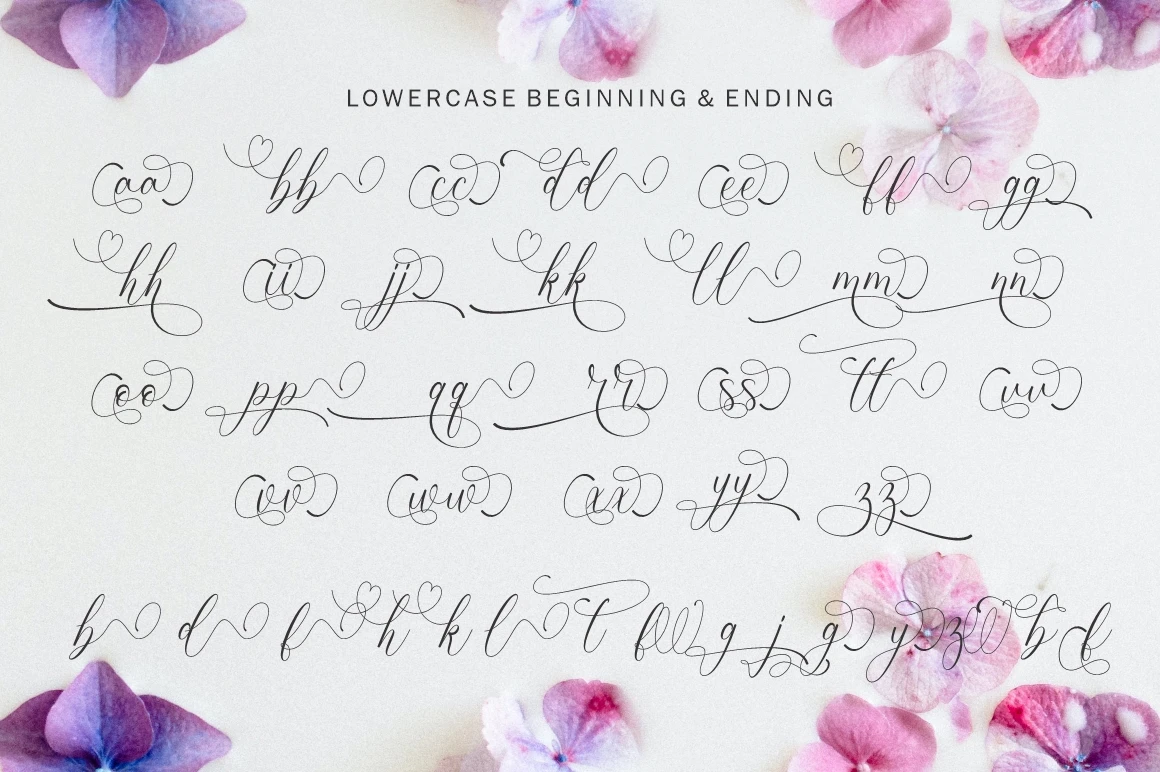 LOWERCASE BEGINNING & ENDING
aa bb cc dd ee ff gg
hh ii jj kk ll mm nn
oo pp qq rr ss tt uu
vv ww xx yy zz
b d f h k l t f g j g y z b f